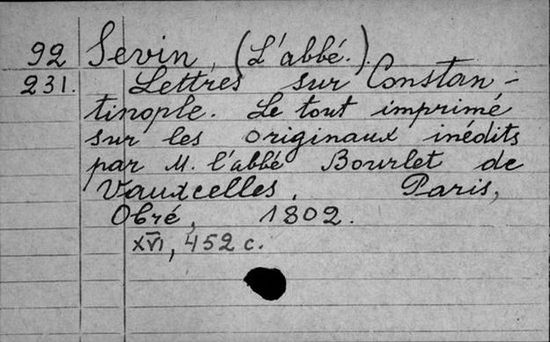 92 Sevin, (L'abbé.)
231. Lettres sur Constan-
tinople. Le tout imprimé
sur les originaux inédits
par M. l'abbé Bourlet de
Vauxcelles. Paris,
Obré, 1802.
XVI, 452 c.